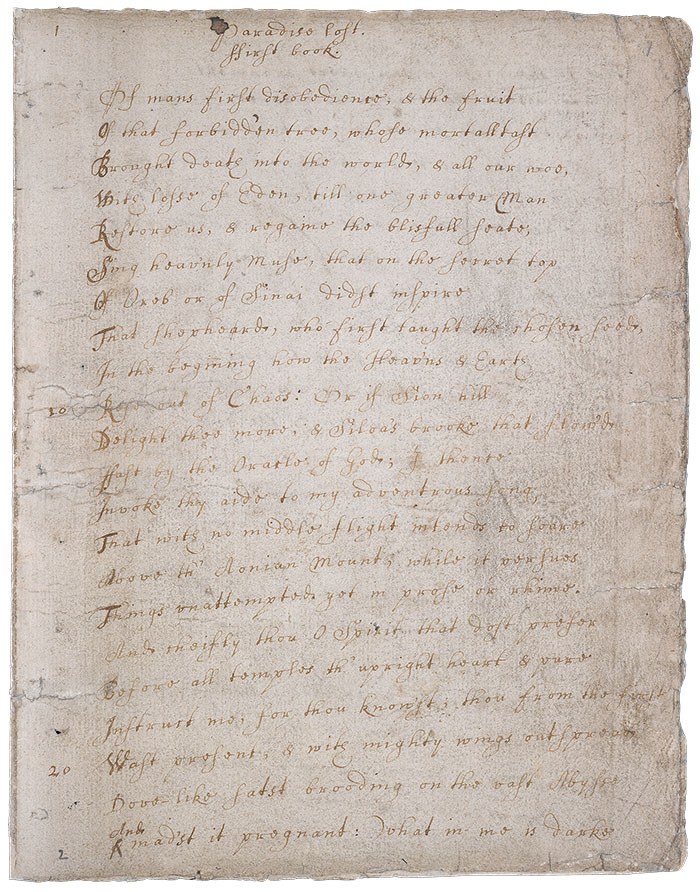 1
Paradise lost.
ffirst book.
Of mans first disobedience, & the fruit
Of that forbidden tree, whose mortall tast
Brought death into the world, & all our woe,
With losse of Eden, till one greater Man
Restore us, & regaine the blisfull seate,
Sing heav'nly Muse, that on the secret top
Of Oreb or of Sinai didst inspire
That shepheard, who first taught the chosen seed,
In the begining how the Heav'ns & Earth
10 out of Chaos: Or if Sion hill
Delight thee more, & Siloa's brooke that flow'd
ffast by the Oracle of God; I thence
Invoke thy aide to my adventrous song,
That with no middle flight intends to soare
Above th' Aonian Mount, while it persues
Things unattempted yet in prose or rhime.
And cheifly thou O Spirit that dost prefer
Before all temples th' upright heart & pure
Instruct me, for thou know'st; thou from the first
Wast present, & with mighty wings outspread
20 Dove like satst brooding on the vast Abysse
And
& mad'st it pregnant: What in me is darke
2